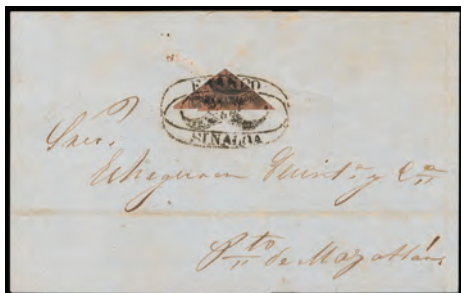 FRANCO
SINALOA
Sres.
Echeguren Quintº y Cª
Pto de Mazatlán